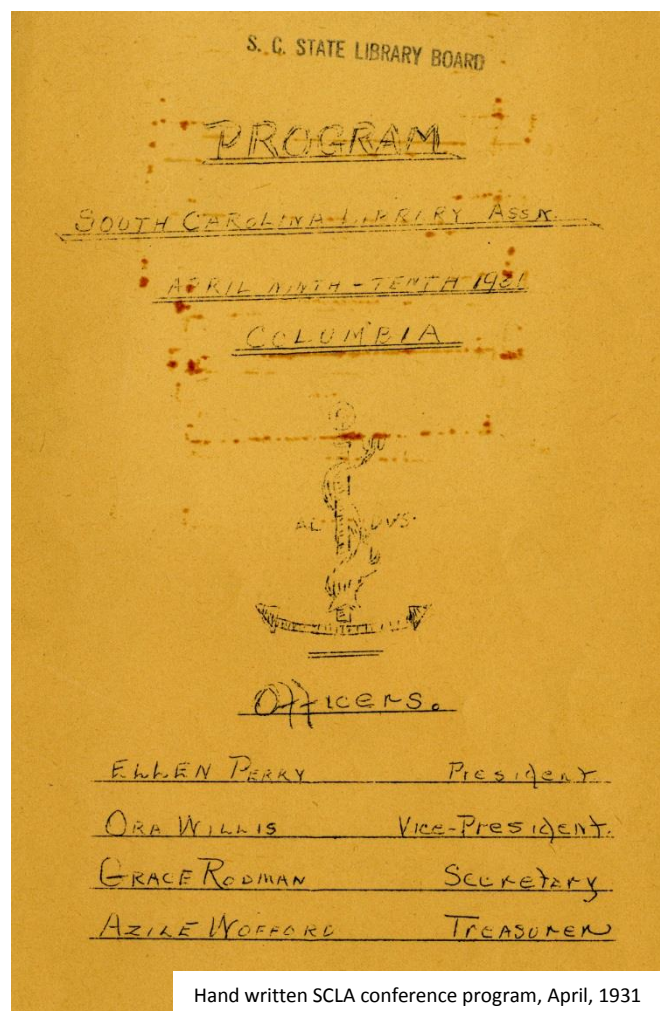 S. C. STATE LIBRARY BOARD
PROGRAM
SOUTH CAROLINA LIBRARY ASSN.
APRIL NINTH - TENTH 1931
COLUMBIA
AL DVS.
Officers.
ELLEN PERRY President
ORA WILLIS Vice-President.
GRACE RODMAN Secretary
AZILE WOFFORD TREASURER
Hand written SCLA conference program, April, 1931